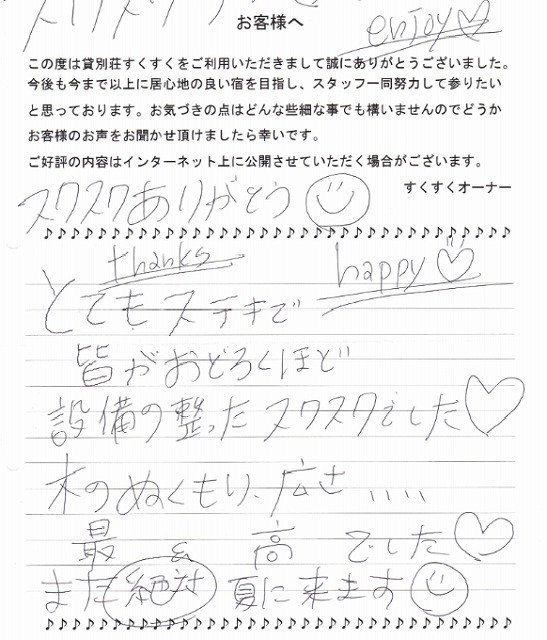 スクスク
お客様へ
enjoy♡
この度は貸別荘すくすくをご利用いただきまして誠にありがとうございました。
今後も今まで以上に居心地の良い宿を目指し、スタッフ一同努力して参りたい
と思っております。お気づきの点はどんな些細な事でも構いませんのでどうか
お客様のお声をお聞かせ頂けましたら幸いです。
ご好評の内容はインターネット上に公開させていただく場合がございます。
すくすくオーナー
スクスクありがとう
♪♪♪♪♪♪♪♪♪♪♪♪♪♪♪♪♪♪♪♪♪♪♪♪♪♪♪♪♪♪♪♪♪♪♪♪
thanks happy♡
とてもステキで
皆がおどろくほど
設備の整ったスクスクでした♡
木のぬくもり、広さ、、、、、
最&高でした♡
また絶対夏に来ます
♪♪♪♪♪♪♪♪♪♪♪♪♪♪♪♪♪♪♪♪♪♪♪♪♪♪♪♪♪♪♪♪♪♪♪♪